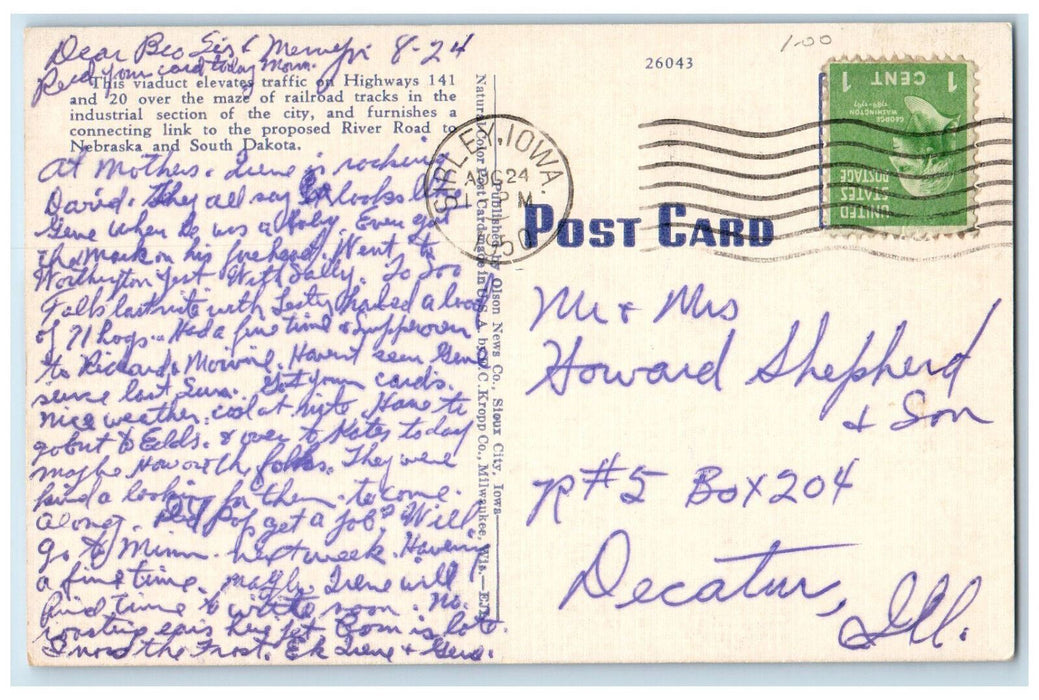 Dear Bro Sis & 8-24
Recd your card today Mom.
This viaduct elevates traffic on Highways 141
and 20 over the maze of railroad tracks in the
industrial section of the city, and furnishes a
connecting link to the proposed River Road to
Nebraska and South Dakota.
At Mothers. Irene is rocking
David. They all say he looks like
Gene when he was a baby. Even got
the mark on his forehead. Went to
Worthington yest with Sally. To Soo
Falls last nite with Lester hauled a load
of 71 hogs. Had a fine time & supper over
to Richard & Havent seen Gene
since last Sun. Got your cards.
nice weather. cool at nite. Have to
go out to Edds. & over to Kates today
maybe Howorth folks. They were
kind a looking for them to come
along. Did Pop get a job? Will
go to Minn. next week. Having
a fine time. Maybe Irene will
find time to write soon. No
roasting ears here yet Corn is late.
the Frost. Ek Irene + Gene.
Natural Color Post Card made in U.S.A. by E.C. Kropp Co., Milwaukee, Wis.
Published by Olson News Co., Sioux City, Iowa
26043
1.00
SIBLEY, IOWA.
AUG 24
PM
1950
1 CENT 1
GEORGE
WASHINGTON
1789-1797
UNITED
STATES
POSTAGE
POST CARD
Mr + Mrs
Howard Shepherd
& Son
R#5 Box 204
Decatur,
Ill.